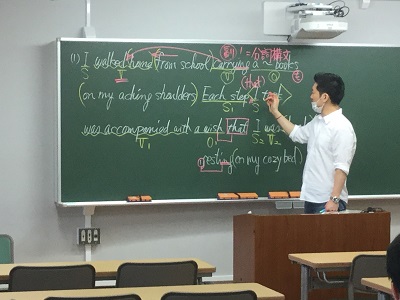 副! = 分詞構文
(1) I walked home (from school) carrying a ~ books
S V V O
(on my aching shoulders) Each step (that) I took
S1
was accompanied with a wish that I was
V1 O S2 V2
resting (on my cozy bed)